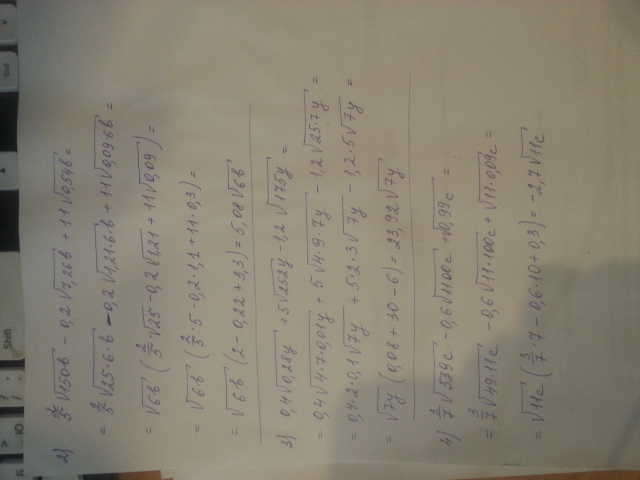 2) 2/5√150b - 0,2√7,26b + 11√0,54b =
= 2/5√25·6·b - 0,2√1,21·6b + 11√0,09·6b =
= √6b (2/5·√25 - 0,2√1,21 + 11√0,09) =
= √6b (2/5·5 - 0,2·1,1 + 11·0,3) =
= √6b (2 - 0,22 + 3,3) = 5,08√6b
3) 0,4√0,28y + 5√252y - 1,2√175y =
= 0,4√4·7·0,01y + 5√4·9·7y - 1,2√25·7y =
= 0,4·2·0,1√7y + 5·2·3√7y - 1,2·5√7y =
= √7y (0,08 + 30 - 6) = 23,92√7y
4) 3/7√539c - 0,6√1100c + √0,99c =
= 3/7√49·11c - 0,6√11·100c + √11·0,09c =
= √11c (3/7·7 - 0,6·10 + 0,3) = -2,7√11c
Shift